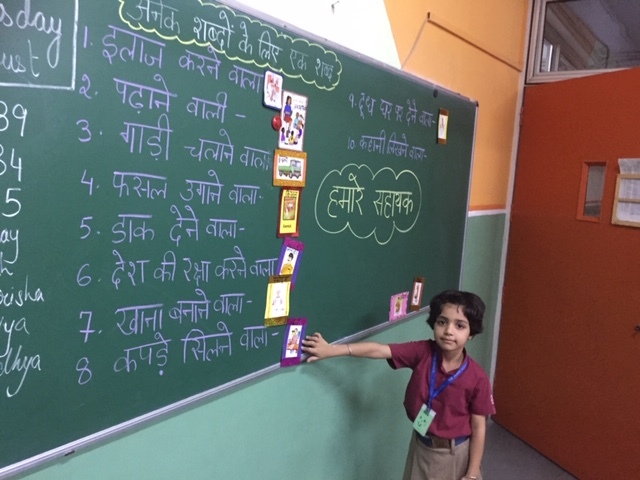 sday
ust
39
34
5
ay
eisha
ya
dhya
अनेक शब्दों के लिए एक शब्द
1. इलाज करने वाला
2. पढ़ाने वाली -
3. गाड़ी चलाने वाला
4. फसल उगाने वाला-
5. डाक देने वाला-
6. देश की रक्षा करने वाला
7. खाना बनाने वाला-
8 कपड़े सिलने वाला-
९. दूध घर पर देने वाला-
10. कहानी लिखने वाला-
हमारे सहायक